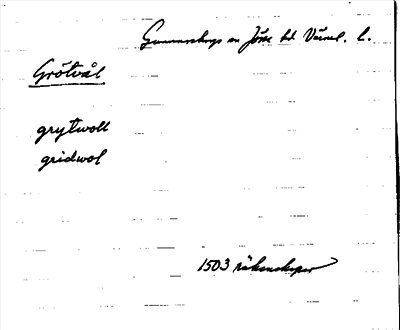 Gunnarskogs sn Jösse hd Värml. l.
Grötvål
grytwoll
gridwol
1503 räkenskaper